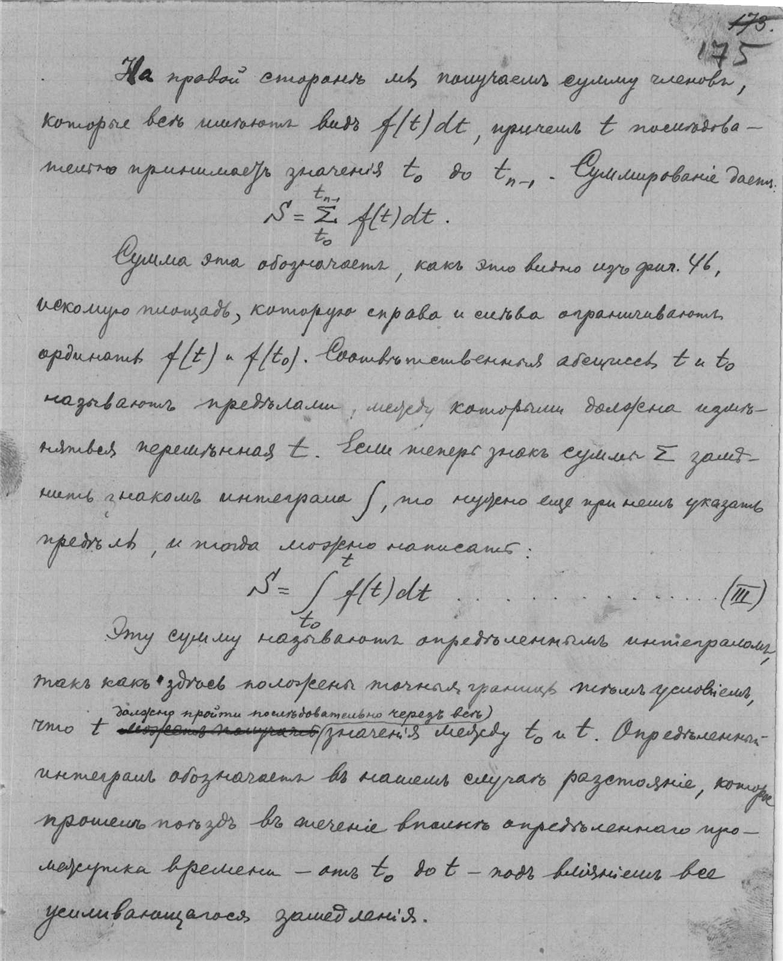 173.
175
На правой сторонѣ мы получаемъ сумму членовъ,
которые всѣ имѣютъ видъ f(t)dt, причемъ t послѣдова-
тельно принимаетъ значенія t₀ до tₙ₋₁. Суммированіе даетъ:
S = Σ f(t)dt.
tₙ₋₁
t₀
Сумма эта обозначаетъ, какъ это видно изъ фиг. 46,
искомую площадь, которую справа и слѣва ограничиваютъ
ординаты f(t) и f(t₀). Соотвѣтственныя абсциссы t и t₀
называютъ предѣлами, между которыми должна измѣ-
няться перемѣнная t. Если теперь знакъ суммы Σ замѣ-
нить знакомъ интеграла ∫, то нужно еще при немъ указать
предѣлы, и тогда можно написать:
t
S = ∫ f(t)dt . . . . . . . . . . . . . . (III)
t₀
Эту сумму называютъ опредѣленнымъ интеграломъ,
такъ какъ здѣсь положены точныя границы тѣмъ условіемъ,
должно пройти послѣдовательно черезъ всѣ
что t значенія между t₀ и t. Опредѣленный
интегралъ обозначаетъ въ нашемъ случаѣ разстояніе, которое
прошелъ поѣздъ въ теченіе вполнѣ опредѣленнаго про-
межутка времени – отъ t₀ до t – подъ вліяніемъ все
усиливающагося замедленія.